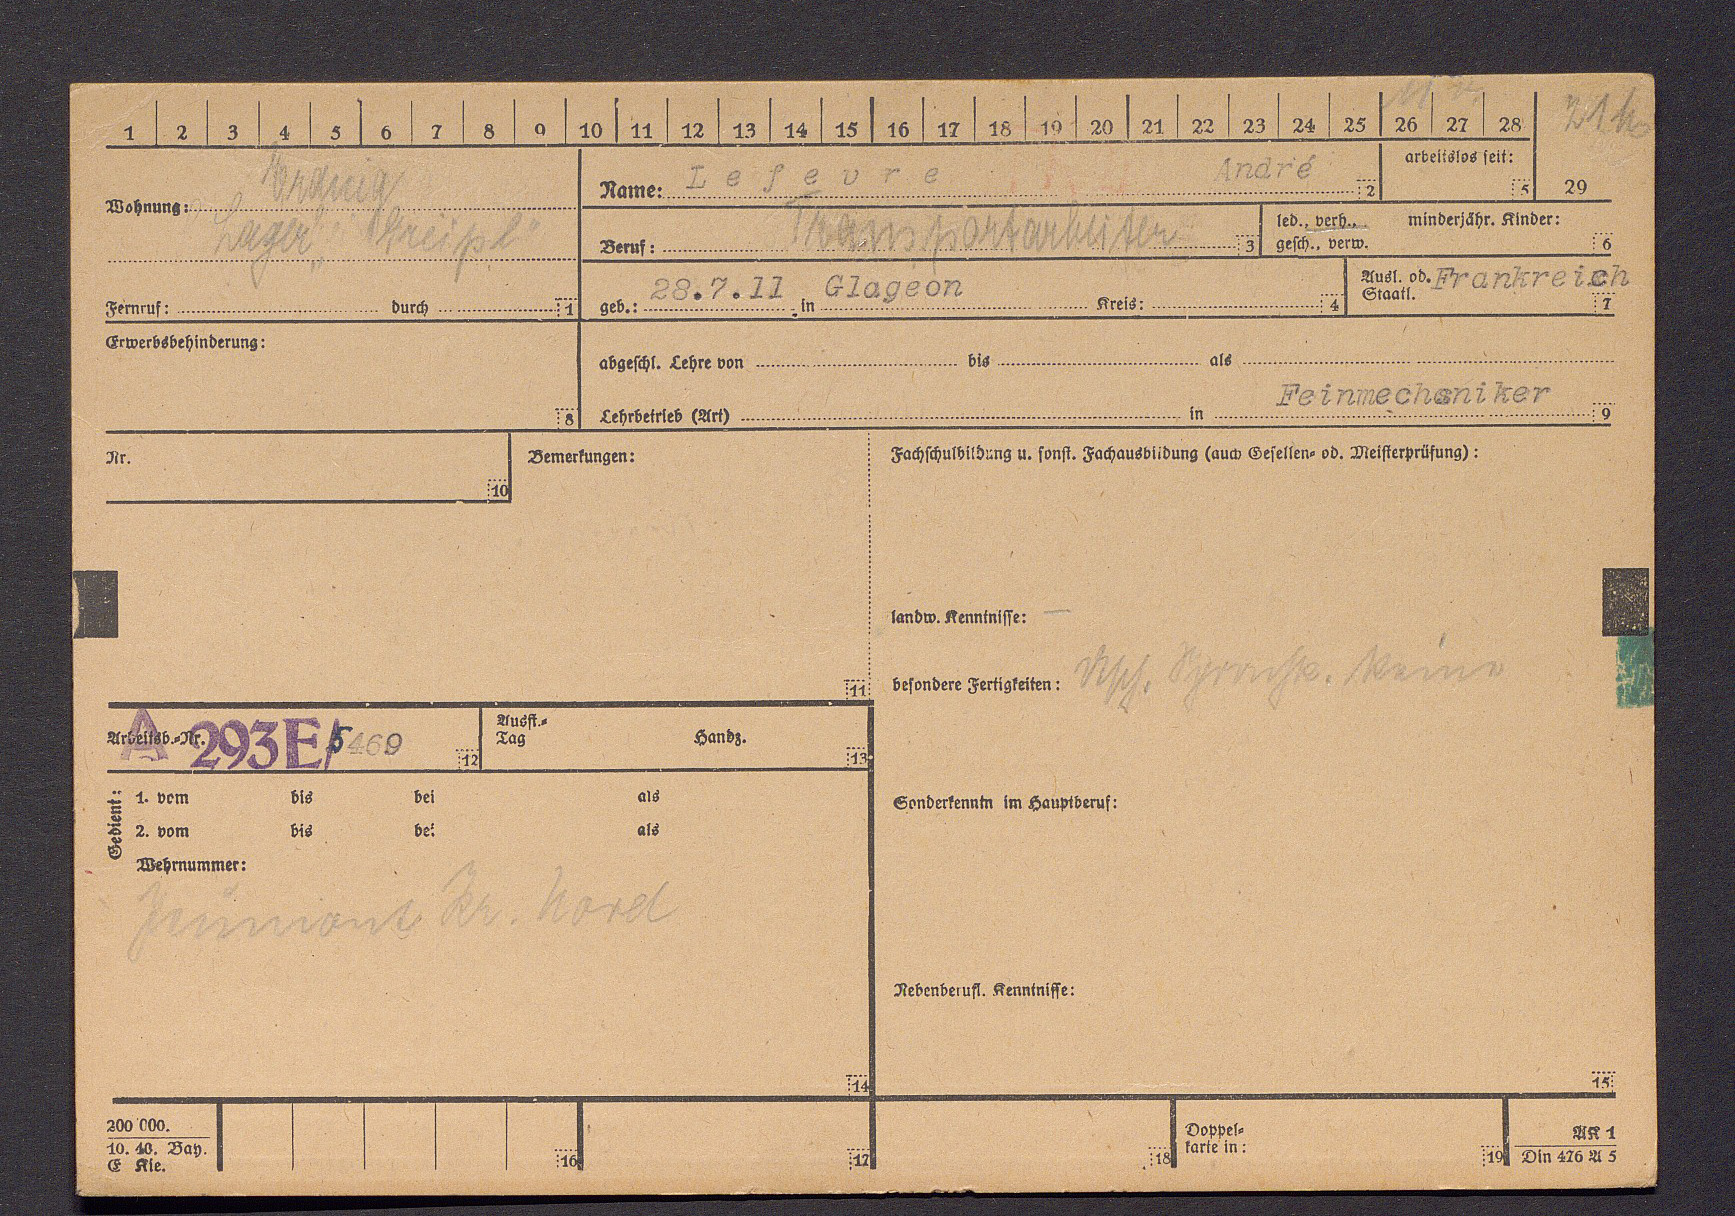 1 2 3 4 5 6 7 8 9 10 11 12 13 14 15 16 17 18 19 20 21 22 23 24 25 26 27 28
Wohnung:
Lager
Fernruf: durch 1
Name: Lefevre André 2
arbeitslos seit: 5
29
Beruf: Transportarbeiter 3
led., verh., minderjähr. Kinder:
gesch., verw. 6
geb.: 28.7.11 in Glageon Kreis: 4
Ausl. od. Frankreich
Staatl. 7
Erwerbsbehinderung:
8
abgeschl. Lehre von bis als
Feinmechaniker
Lehrbetrieb (Art) in 9
Nr.
10
Bemerkungen:
11
Fachschulbildung u. sonst. Fachausbildung (auch Gesellen- od. Meisterprüfung):
landw. Kenntnisse: —
besondere Fertigkeiten: dtsch. Sprachk. keine
Arbeitsb.-Nr. A 293E/5469 12
Ausst.-
Tag Handz. 13
Gedient:
1. vom bis bei als
2. vom bis bei als
Wehrnummer:
Jeumont Kr. Nord
14
Sonderkenntn im Hauptberuf:
Nebenberufl. Kenntnisse:
15
200 000.
10. 40. Bay.
E Kie.
16
17
18
Doppel-
karte in: 19
AK 1
Din 476 A 5